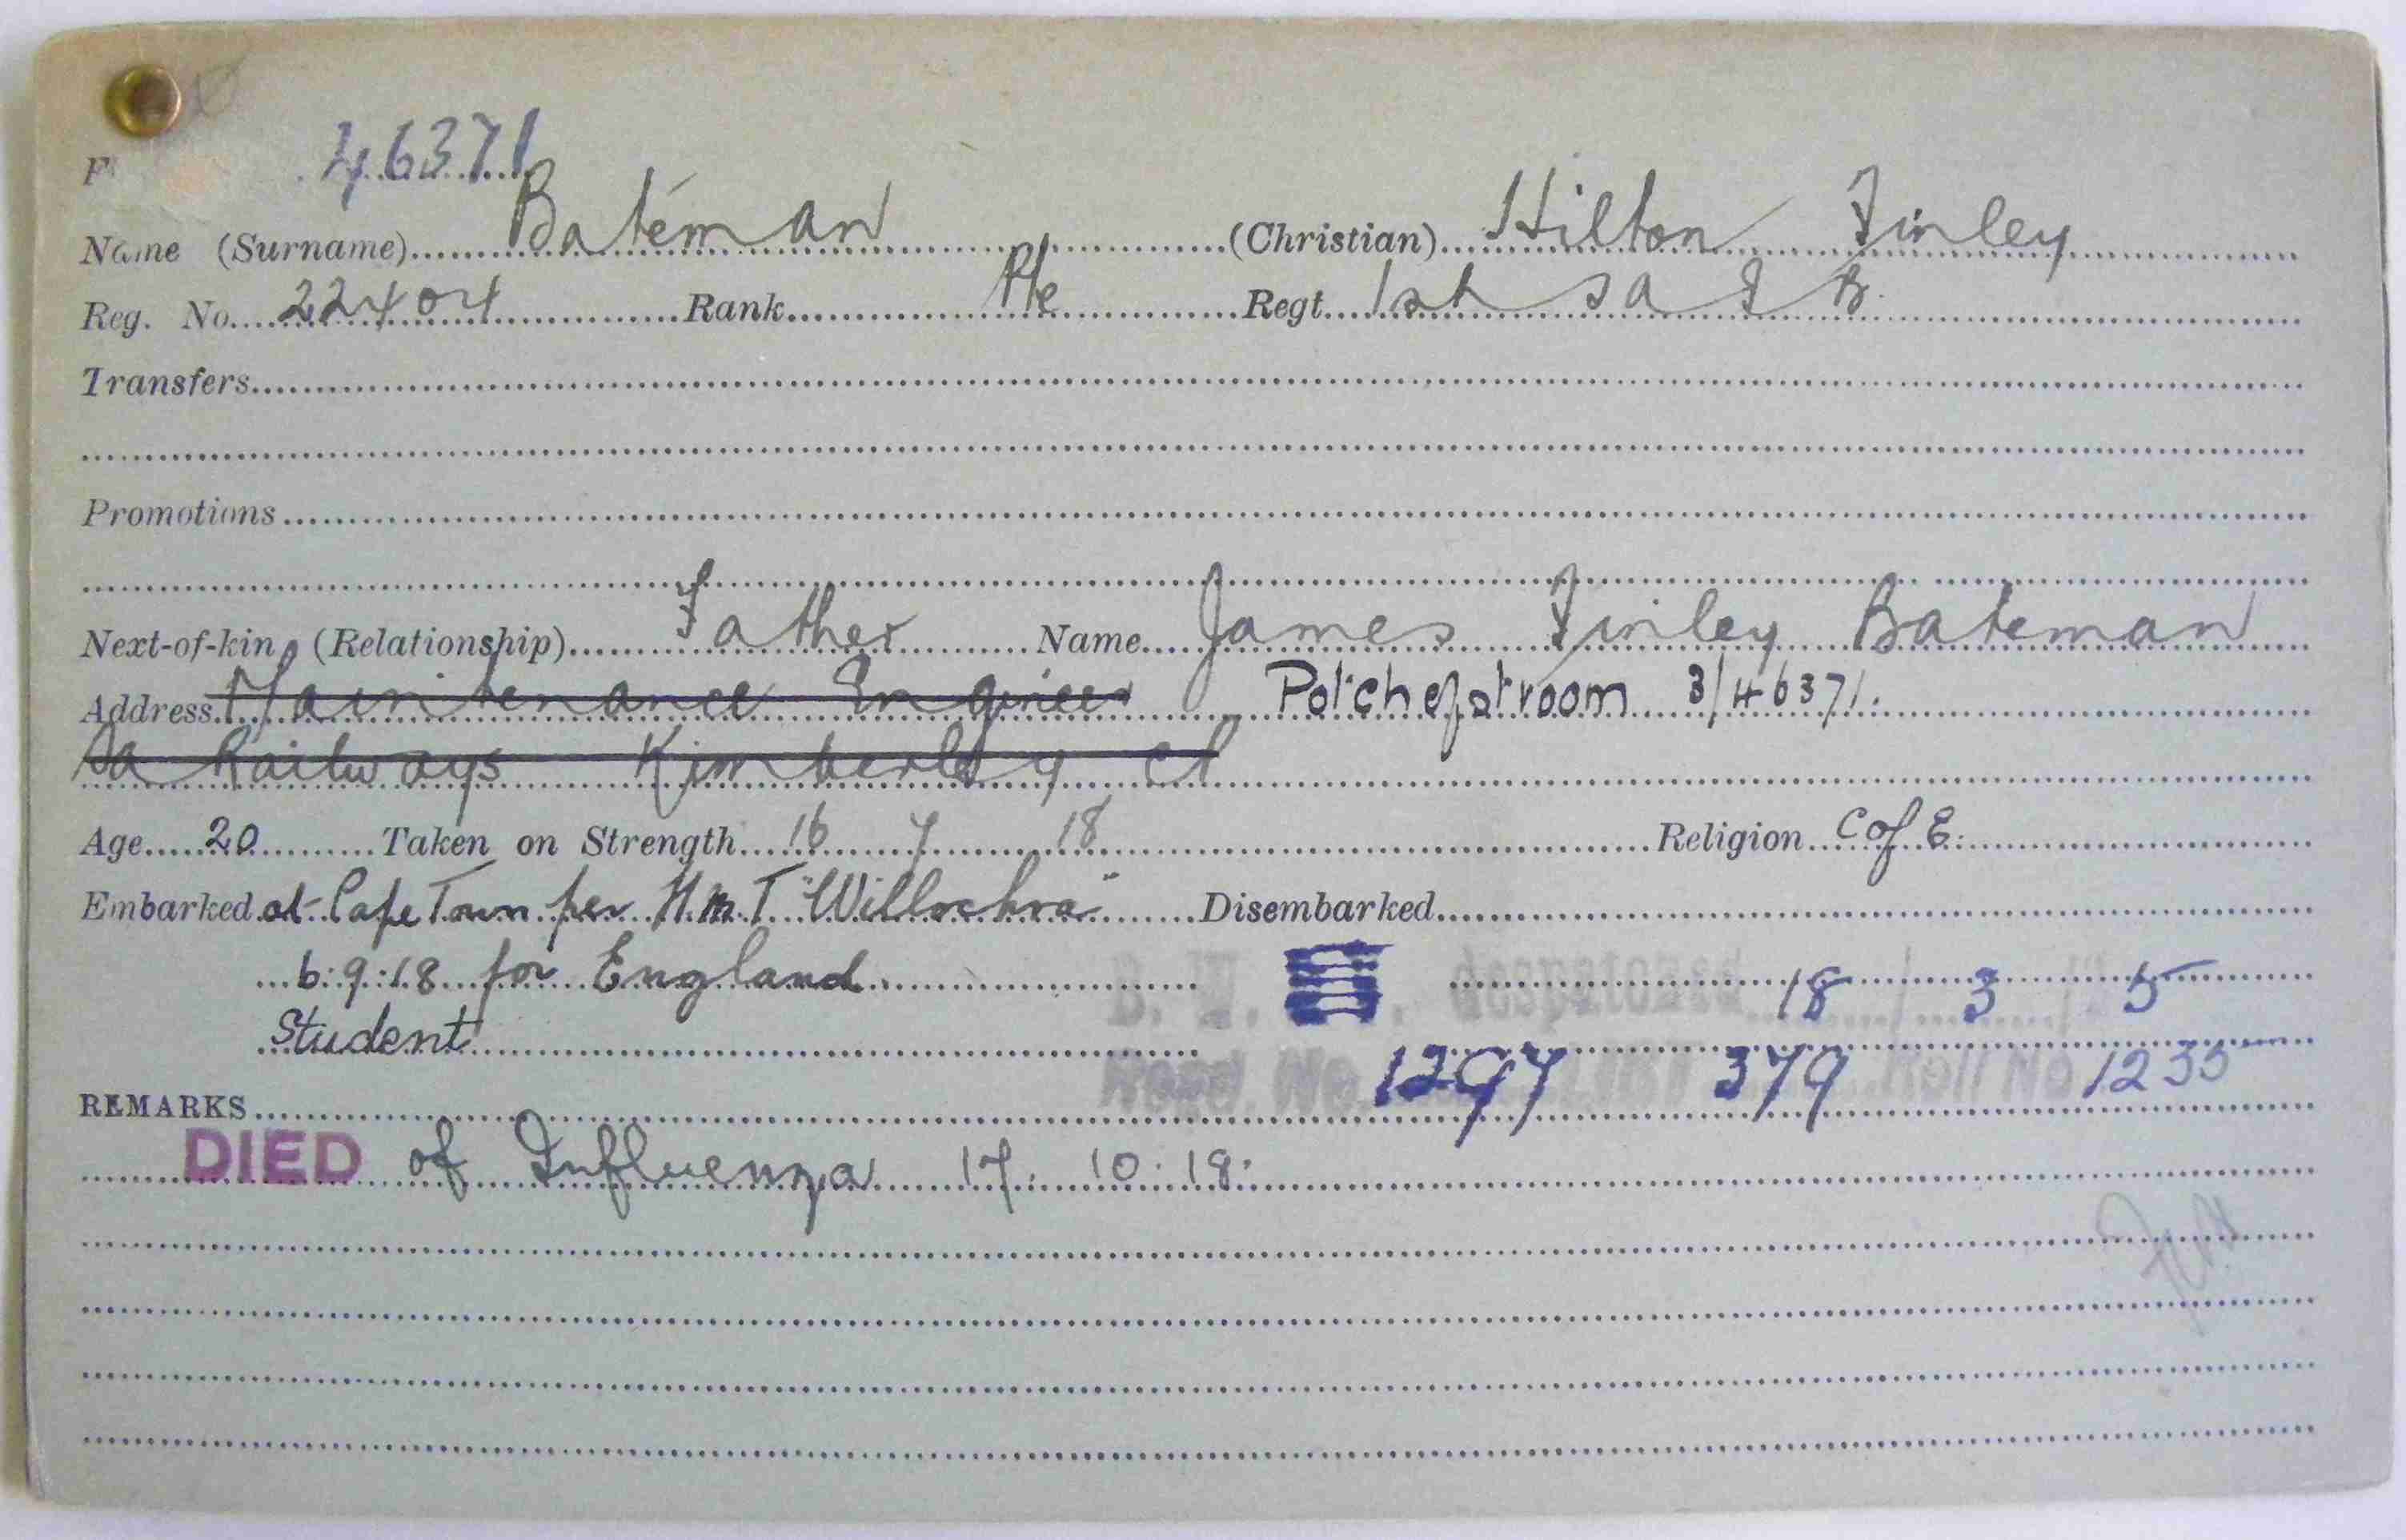 46371
Name (Surname) Bateman (Christian) Hilton Finley
Reg. No. 22404 Rank Pte Regt. 1st S A I B.
Transfers
Promotions
Next-of-kin (Relationship) Father Name James Finley Bateman
Address Maintenance Engineer Potchefstroom 3/46371.
Sa Railways Kimberley
Age 20 Taken on Strength 16 7 18 Religion C of E.
Embarked at Cape Town per H.M.T. "Willochra" Disembarked
6:9:18 for England despatched 18 / 3 / 5
Student
1297 379 Roll No 1235
REMARKS
DIED of Influenza 17. 10. 18.